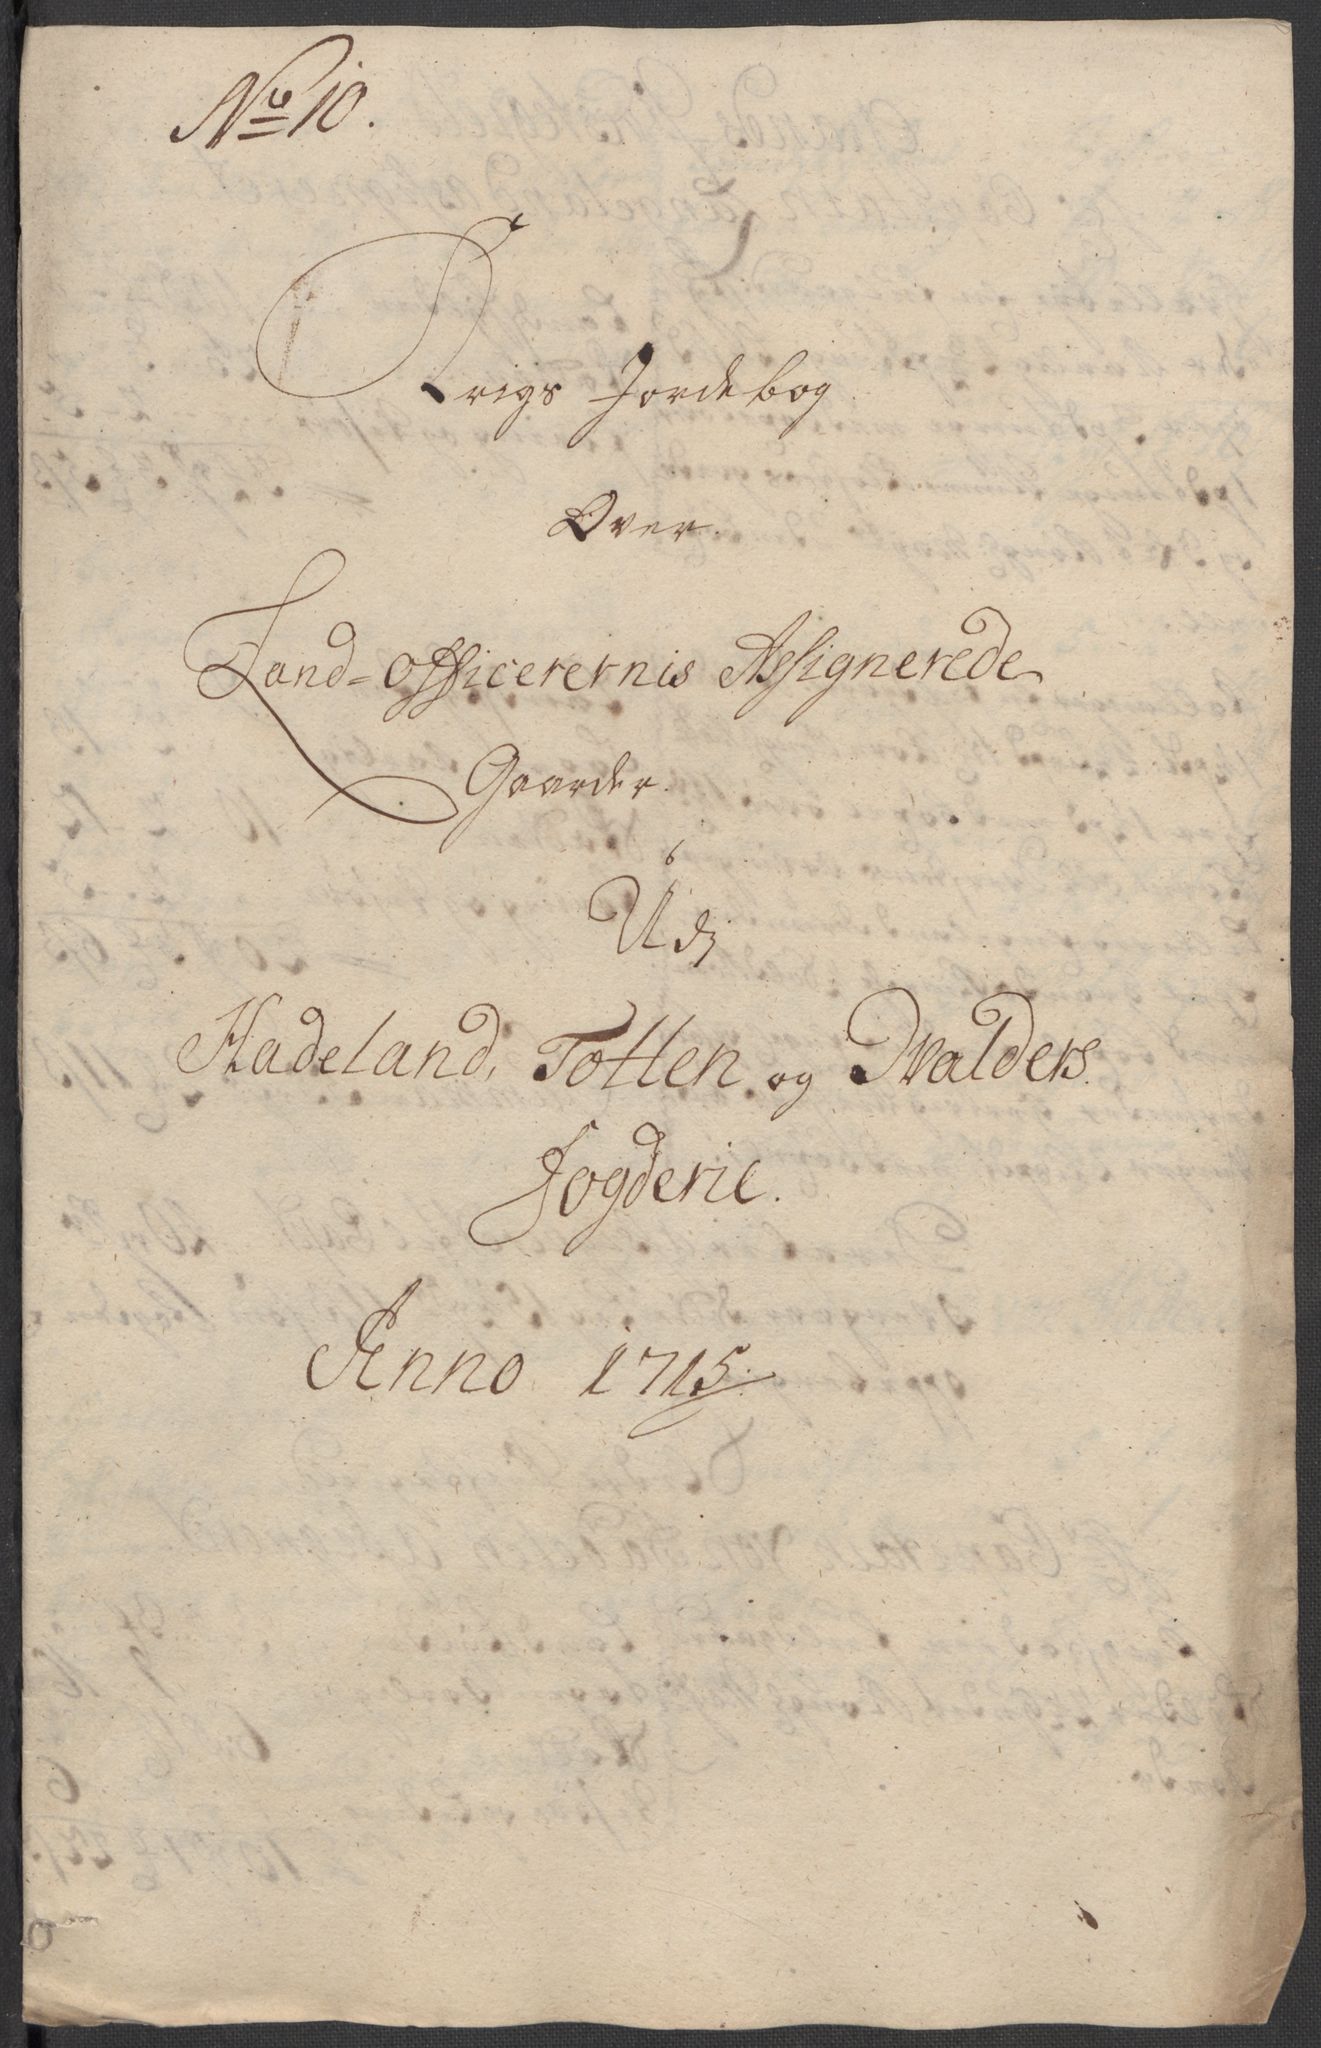 No 10.
Krigs Jordebog
Over
Land-officerernis Assignerede
Gaarder.
Udj
Hadeland, Totten og Walders
Fogderie.
Anno 1715.